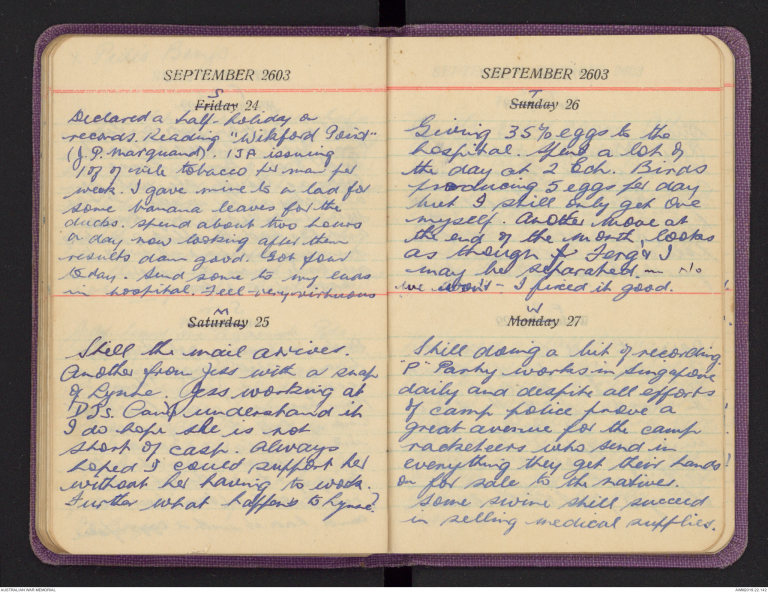 SEPTEMBER 2603
S
Friday 24
Declared a half-holiday on
records. Reading "Wikford Point"
(J.P. Marquand). IJA issuing
1oz of vile tobacco per man per
week. I gave mine to a lad for
some banana leaves for the
ducks. Spend about two hours
a day now looking after them
results damn good. Got four
today. Send some to my lads
in hospital. Feel very virtuous
M
Saturday 25
Still the mail arrives.
Another from Jess with a snap
of Lynne. Jess working at
D.J's. Can't understand it
I do hope she is not
short of cash. Always
hoped I could support her
without her having to work.
Further what happens to Lynne?
SEPTEMBER 2603
T
Sunday 26
Giving 35% eggs to the
hospital. Spend a lot of
the day at 2 Ech. Birds
producing 5 eggs per day
but I still only get one
myself. Another move at
the end of the month, looks
as though Ferg & I
may be separated. — No
we won't – I fixed it good.
W
Monday 27
Still doing a bit of recording.
"P" Party works in Singapore
daily and despite all efforts
of camp police prove a
great avenue for the camp
racketeers who send in
everything they get their hands
on for sale to the natives.
Some swine still succeed
in selling medical supplies.
AUSTRALIAN WAR MEMORIAL